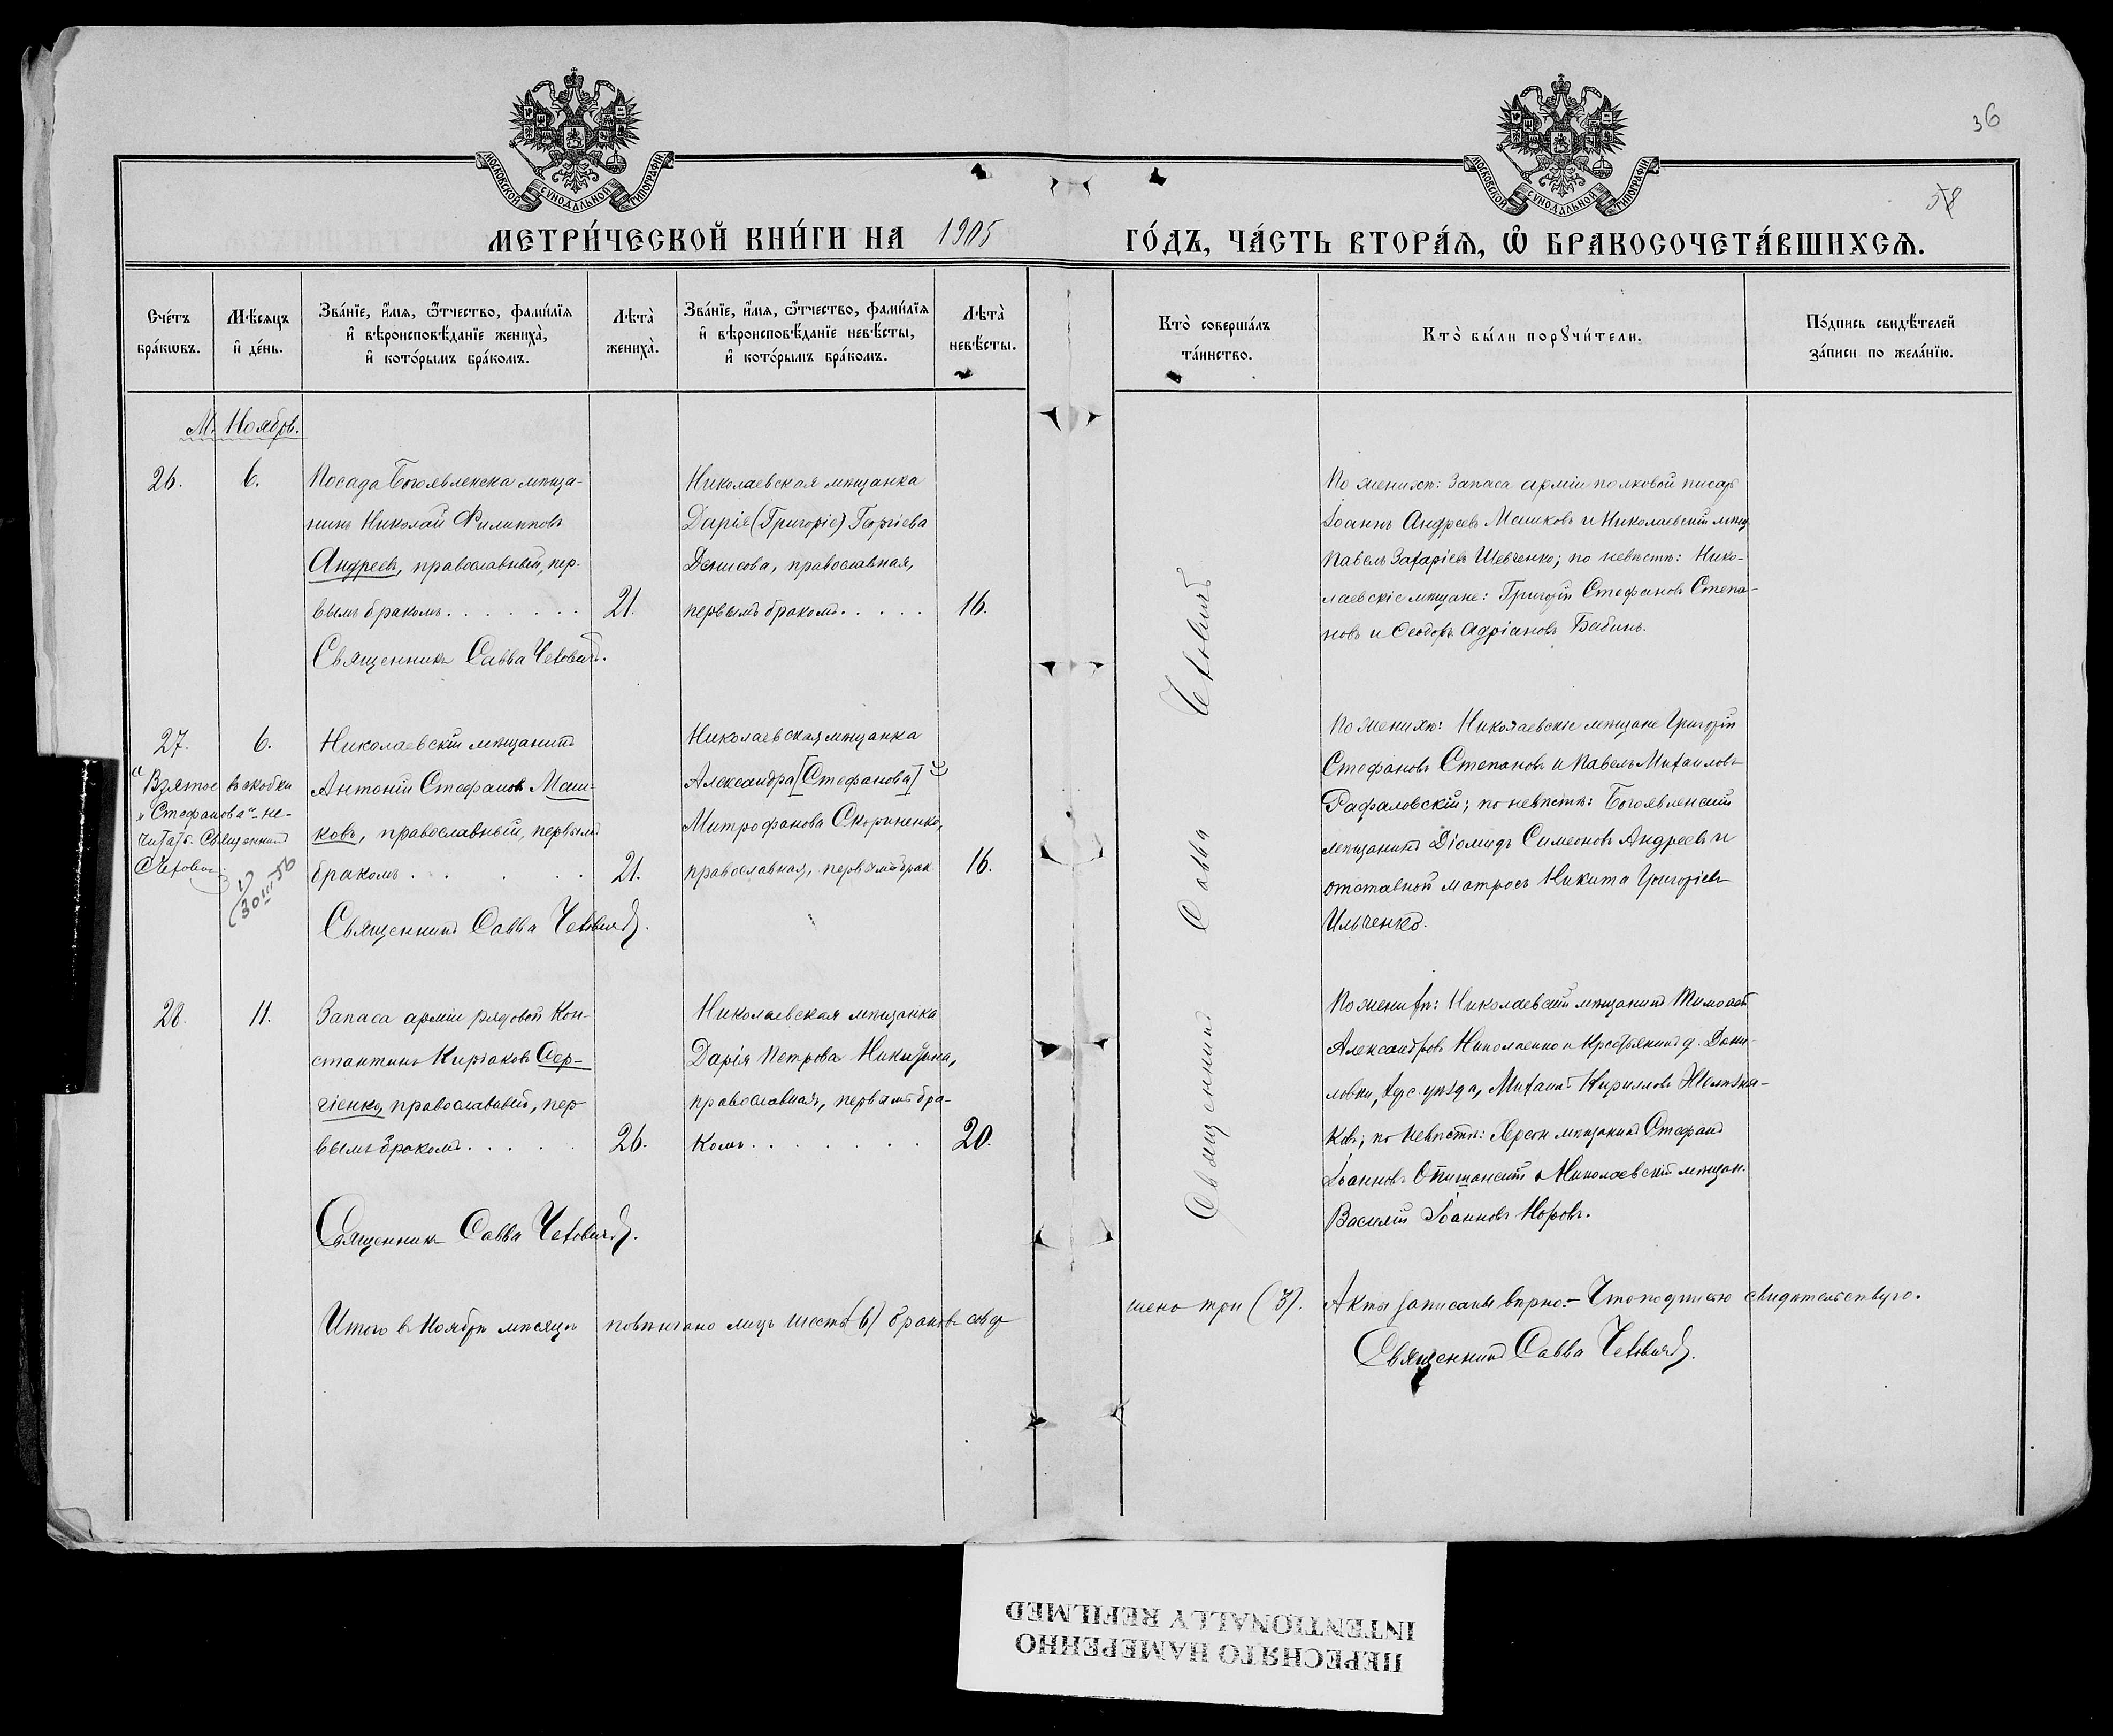 36
58
МОСКОВСКОЙ СУНОДАЛЬНОЙ ТИПОГРАФІИ
МОСКОВСКОЙ СУНОДАЛЬНОЙ ТИПОГРАФІИ
МЕТРИ́ЧЕСКОЙ КНИ́ГИ НА 1905 ГО́ДЪ, ЧА́СТЬ ВТОРА́Ѧ, Ѽ БРАКОСОЧЕТА́ВШИХСѦ.
Сче́тъ бра́кѡвъ.
Мѣ́сяцъ и҆ де́нь.
Зва́нїе, и҆́мѧ, ѻ҆́тчество, фами́лїѧ и҆ вѣроисповѣ́данїе жениха̀, и҆ кото́рымъ бра́комъ.
Лѣта̀ жениха̀.
Зва́нїе, и҆́мѧ, ѻ҆́тчество, фами́лїѧ и҆ вѣроисповѣ́данїе невѣ́сты, и҆ кото́рымъ бра́комъ.
Лѣта̀ невѣ́сты.
Кто̀ соверша́лъ та́инство.
Кто̀ бы́ли порꙋчи́тели.
По́дпись свидѣ́телей за́писи по жела́нїю.
М. Ноябрь.
26.
6.
Посада Богоявленска мѣща-
нинъ Николай Филипповъ
Андреевъ, православный, пер-
вымъ бракомъ . . . . . . .
21.
Николаевская мѣщанка
Дарія (Григоріе) Георгіева
Денисова, православная,
первымъ бракомъ . . . . .
16.
Священникъ Савва Чеховичъ.
По женихѣ: Запаса арміи полковой писарь
Іоаннъ Андреевъ Машковъ и Николаевскій мѣщ.
Павелъ Захаріевъ Шевченко; по невѣстѣ: Нико-
лаевскіе мѣщане: Григорій Стефановъ Степа-
новъ и Ѳеодоръ Адріановъ Бабинъ.
27.
6.
Взятое въ скобки
„Стефанова“ не-
читать. Священникъ
Чеховичъ
30 III 56
Николаевскій мѣщанинъ
Антоній Стефановъ Маш-
ковъ, православный, первымъ
бракомъ . . . . .
21.
Николаевская мѣщанка
Александра [Стефанова]
Митрофанова Скориненко,
православная, первымъ брак.
16.
Священникъ Савва Чеховичъ.
По женихѣ: Николаевскіе мѣщане Григорій
Стефановъ Степановъ и Павелъ Михаиловъ
Рафаловскій; по невѣстѣ: Богоявленскій
мѣщанинъ Діомидъ Симеоновъ Андреевъ и
отставной матросъ Никита Григоріевъ
Ильченко.
28.
11.
Запаса арміи рядовой Кон-
стантинъ Киріаковъ Сер-
гіенко, православный, пер
вымъ бракомъ . . . . .
26.
Николаевская мѣщанка
Дарія Петрова Никитина,
православная, первымъ бра-
комъ . . . . . . .
20.
Священникъ Савва Чеховичъ.
По женихѣ: Николаевскій мѣщанинъ Тимоѳей
Александровъ Николаенко и крестьянинъ д. Дани-
ловки, Хер. уѣзда, Михаилъ Кирилловъ Желѣзня-
ковъ; по невѣстѣ: Херсон. мѣщанинъ Стефанъ
Іоанновъ Опишанскій и Николаевскій мѣщан.
Василій Іоанновъ Носовъ.
Священникъ Савва Чеховичъ
Итого въ Ноябрѣ мѣсяцѣ повѣнчано лицъ шесть (6) браковъ совер
шено три (3). Акты записаны вѣрно. Что подписью свидѣтельствую.
Священникъ Савва Чеховичъ.
ПЕРЕСНЯТО НАМЕРЕННО
INTENTIONALLY REFILMED